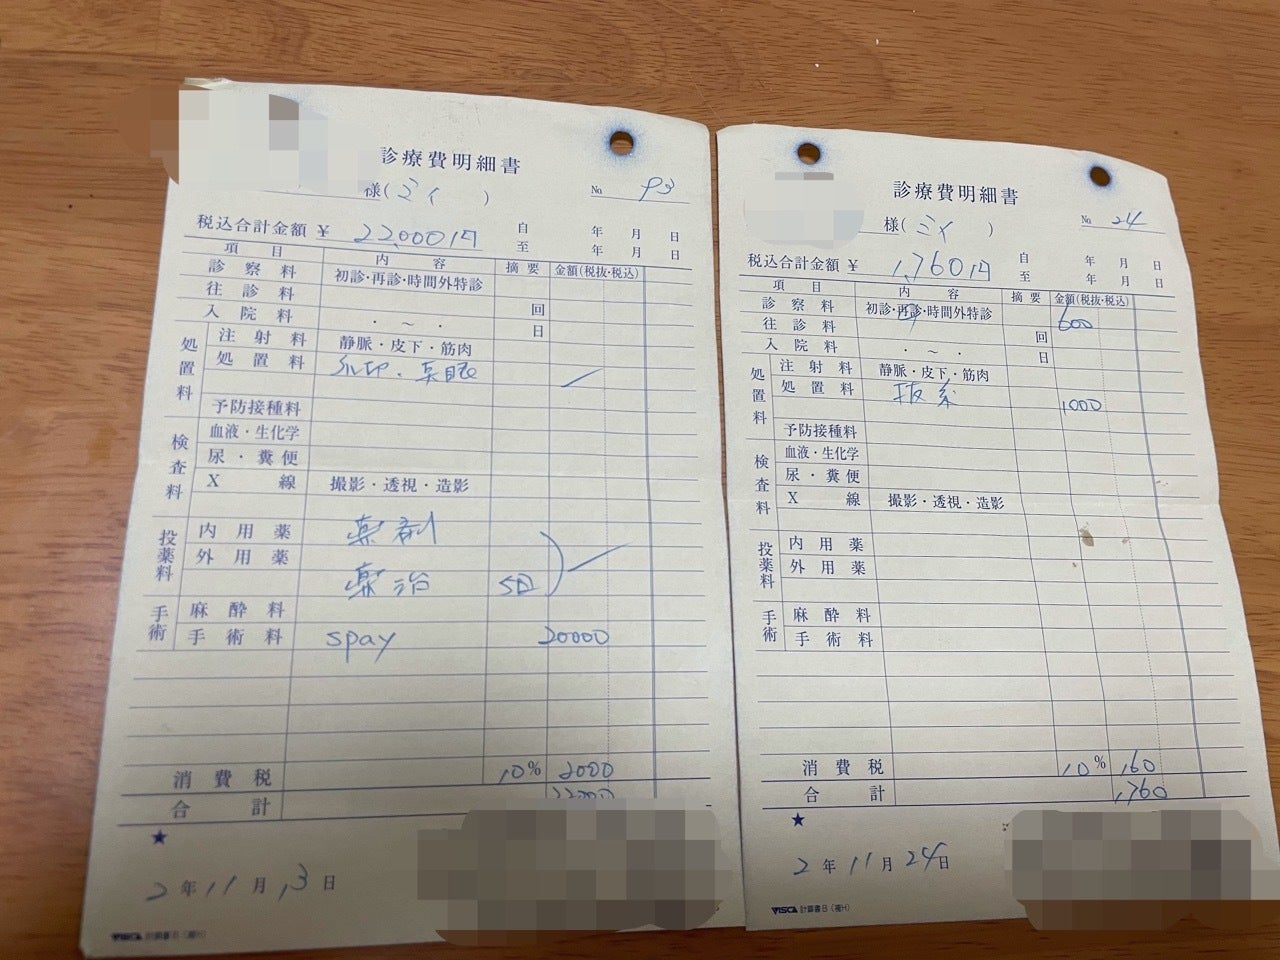 診療費明細書
様(ミイ) № 93
税込合計金額 ¥ 22,000円 自 年 月 日
至 年 月 日
項目 内容 摘要 金額(税抜・税込)
診察料 初診・再診・時間外特診
往診料 回
入院料 ・ ~ ・ 日
処置料
注射料 静脈・皮下・筋肉
処置料
予防接種料
検査料
血液・生化学
尿・糞便
X線 撮影・透視・造影
投薬料
内用薬 薬剤
外用薬
薬浴 5日
手術
麻酔料
手術料 spay 20000
消費税 10% 2000
合計 22000
★
2年11月13日
VISCA 計算書B(複H)
診療費明細書
様(ミイ) № 24
税込合計金額 ¥ 1,760円 自 年 月 日
至 年 月 日
項目 内容 摘要 金額(税抜・税込)
診察料 初診・再診・時間外特診 600
往診料 回
入院料 ・ ~ ・ 日
処置料
注射料 静脈・皮下・筋肉
処置料 抜糸 1000
予防接種料
検査料
血液・生化学
尿・糞便
X線 撮影・透視・造影
投薬料
内用薬
外用薬
手術
麻酔料
手術料
消費税 10% 160
合計 1,760
★
2年11月24日
VISCA 計算書B(複H)